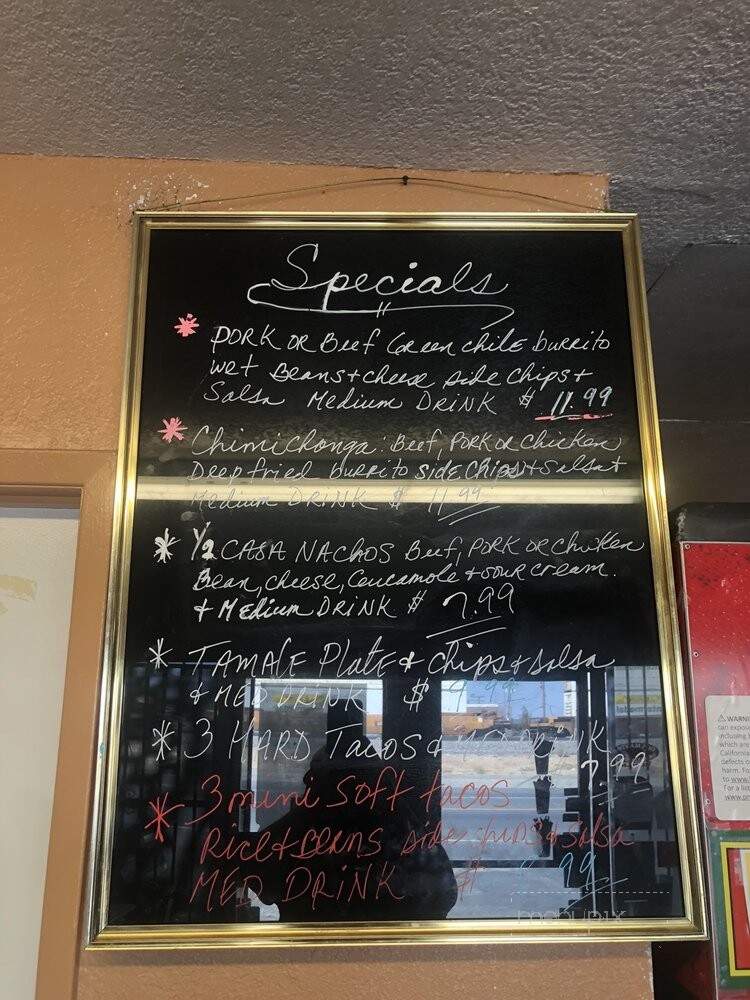 Specials
* PORK OR Beef Green chile burrito
wet Beans + cheese side chips +
Salsa Medium DRINK $ 11.99
* Chimichonga: Beef, PORK OR Chicken
Deep fried burrito side Chips + Salsa +
Medium DRINK $ 11.99
* 1/2 CASA NACHOS Beef, PORK OR Chicken
Bean, cheese, Ceucamole + sour cream.
+ Medium DRINK $ 7.99
* TAMALE Plate + chips + salsa
+ MED DRINK $ 9.99
* 3 HARD TACOS + MED DRINK
7.99
* 3 mini soft tacos
Rice + Beans side chips + salsa
MED DRINK $ .99
WARN
can expos
including
which are
California
defects o
harm. Fo
to www.
For a list
www.pr
mobypix